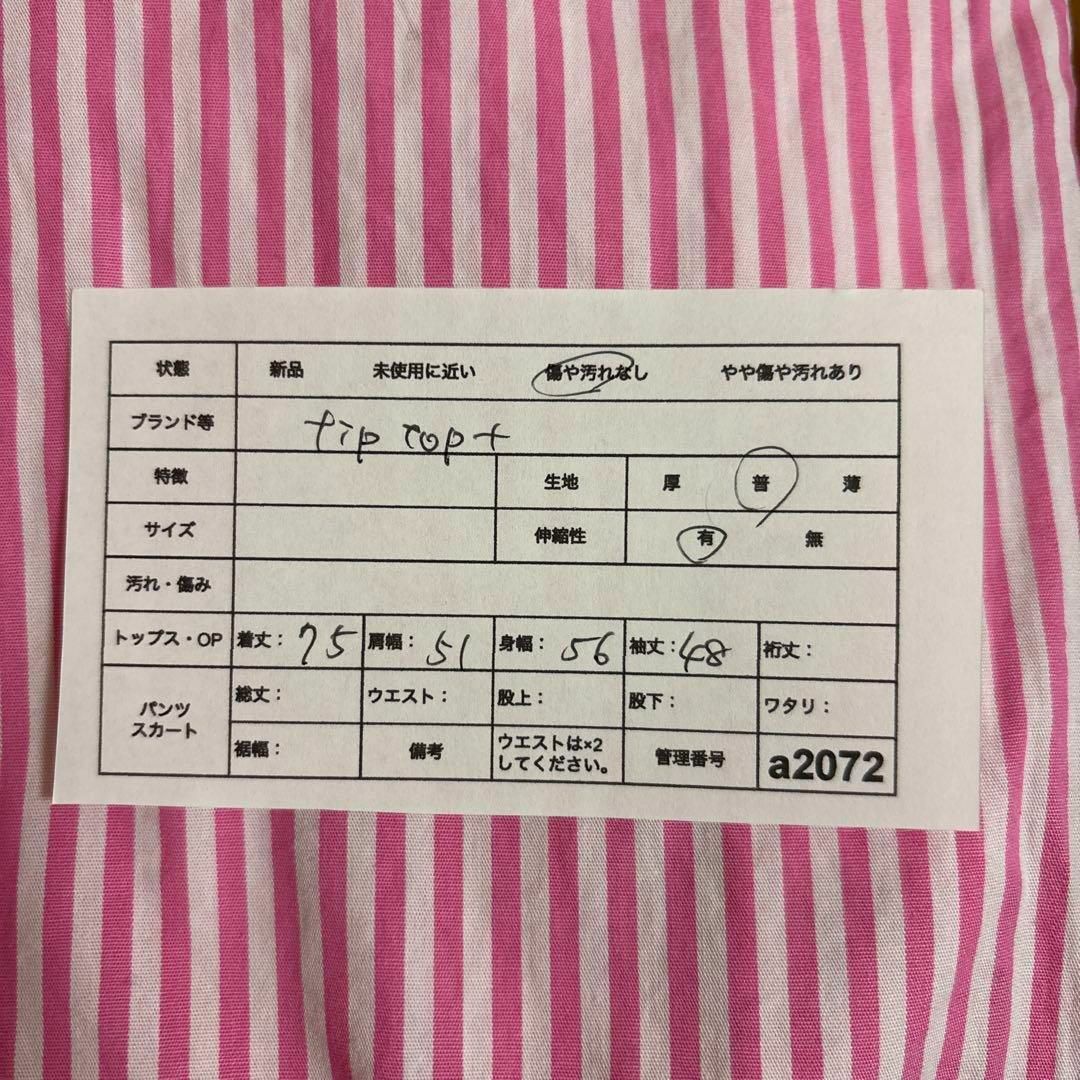 状態 新品 未使用に近い 傷や汚れなし やや傷や汚れあり
ブランド等 tip top+
特徴 生地 厚 普 薄
サイズ 伸縮性 有 無
汚れ・傷み
トップス・OP 着丈：75 肩幅：51 身幅：56 袖丈：48 裄丈：
パンツ
スカート
総丈： ウエスト： 股上： 股下： ワタリ：
裾幅： 備考 ウエストは×2
してください。
管理番号 a2072